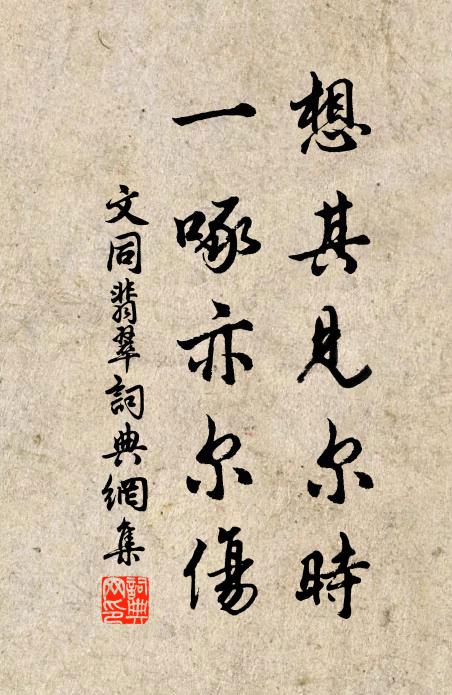 想其見尔時
一啄亦尔傷
文同翡翠詞典網集
詞典网印